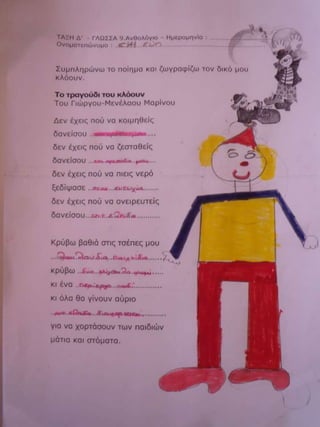 ΤΑΞΗ Δ' - ΓΛΩΣΣΑ 9.Ανθολόγιο - Ημερομηνία :
Ονοματεπώνυμο :
Συμπληρώνω το ποίημα και ζωγραφίζω τον δικό μου
κλόουν.
Το τραγούδι του κλόουν
Του Γιώργου-Μενέλαου Μαρίνου
Δεν έχεις πού να κοιμηθείς
δανείσου
δεν έχεις πού να ζεσταθείς
δανείσου μου
δεν έχεις πού να πιεις νερό
ξεδίψασε στην ευτυχία
δεν έχεις πού να ονειρευτείς
δανείσου την ελπίδα
Κρύβω βαθιά στις τσέπες μου
παιχνίδια
κρύβω δύο
κι ένα παιδί
κι όλα θα γίνουν αύριο
για να χορτάσουν των παιδιών
μάτια και στόματα.